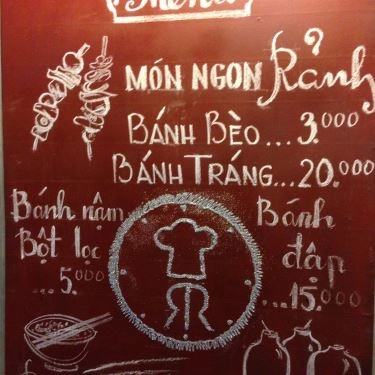 Menu
MÓN NGON Rảnh
BÁNH BÈO... 3.000
BÁNH TRÁNG... 20.000
Bánh nậm
Bột lọc
... 5.000
Bánh
đập
... 15.000
R R